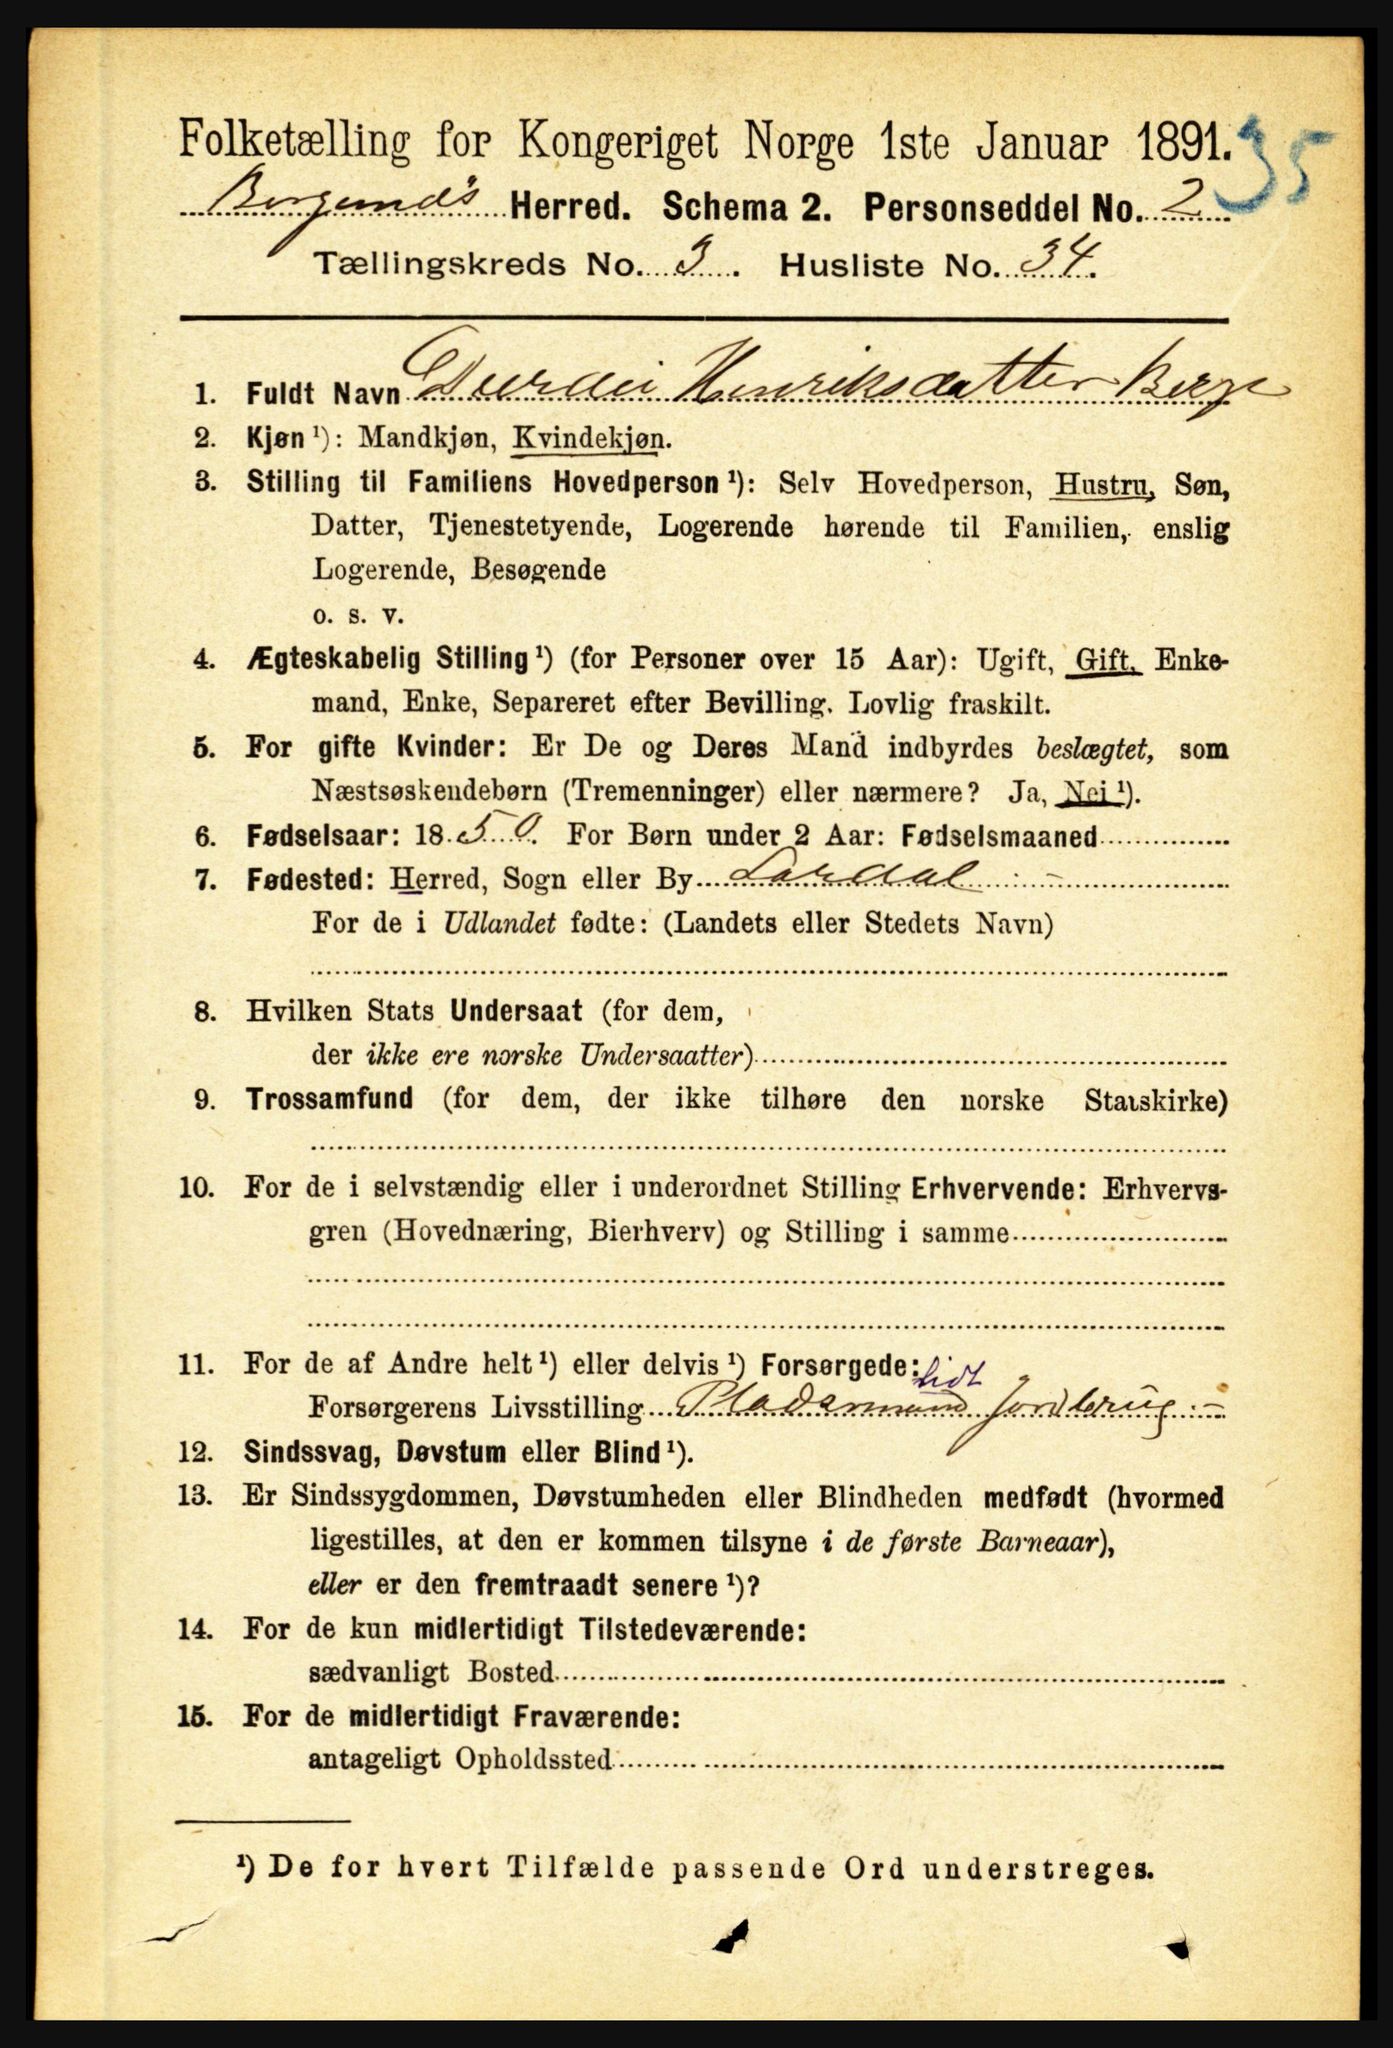 Folketælling for Kongeriget Norge 1ste Januar 1891.
35
Borgunds Herred. Schema 2. Personseddel No. 2
Tællingskreds No. 3. Husliste No. 34.
1. Fuldt Navn Henriksdatter Berge
2. Kjøn ¹): Mandkjøn, Kvindekjøn.
3. Stilling til Familiens Hovedperson ¹): Selv Hovedperson, Hustru, Søn,
Datter, Tjenestetyende, Logerende hørende til Familien, enslig
Logerende, Besøgende
o. s. v.
4. Ægteskabelig Stilling ¹) (for Personer over 15 Aar): Ugift, Gift, Enke-
mand, Enke, Separeret efter Bevilling. Lovlig fraskilt.
5. For gifte Kvinder: Er De og Deres Mand indbyrdes beslægtet, som
Næstsøskendebørn (Tremenninger) eller nærmere? Ja, Nei ¹).
6. Fødselsaar: 1850. For Børn under 2 Aar: Fødselsmaaned
7. Fødested: Herred, Sogn eller By Lærdal
For de i Udlandet fødte: (Landets eller Stedets Navn)
8. Hvilken Stats Undersaat (for dem,
der ikke ere norske Undersaatter)
9. Trossamfund (for dem, der ikke tilhøre den norske Statskirke)
10. For de i selvstændig eller i underordnet Stilling Erhvervende: Erhvervs-
gren (Hovednæring, Bierhverv) og Stilling i samme
11. For de af Andre helt ¹) eller delvis ¹) Forsørgede:
lidt
Forsørgerens Livsstilling Pladsmand Jordbrug
12. Sindssvag, Døvstum eller Blind ¹).
13. Er Sindssygdommen, Døvstumheden eller Blindheden medfødt (hvormed
ligestilles, at den er kommen tilsyne i de første Barneaar),
eller er den fremtraadt senere ¹)?
14. For de kun midlertidigt Tilstedeværende:
sædvanligt Bosted
15. For de midlertidigt Fraværende:
antageligt Opholdssted
¹) De for hvert Tilfælde passende Ord understreges.